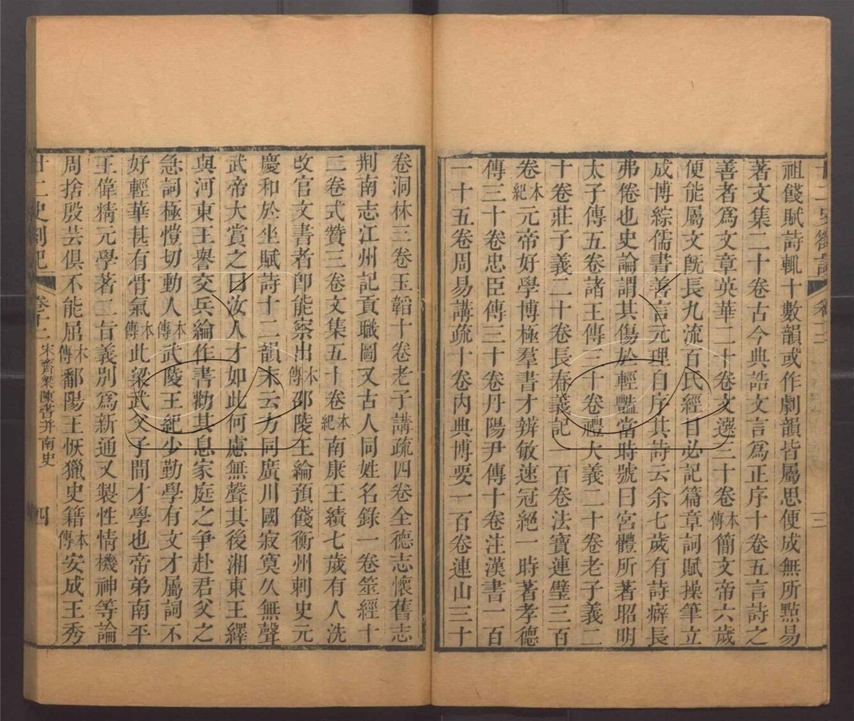 祖餞賦詩輒十數韻或作劇韻皆屬思便成無所㸃易
著文集二十卷古今典誥文言爲正序十卷五言詩之
善者爲文章英華二十卷文選三十卷本傳簡文帝六歲
便能屬文旣長九流百氏經目必記篇章詞賦操筆立
成博綜儒書善言元理自序其詩云余七歲有詩癖長
弗倦也史論謂其傷於輕豔當時號曰宮體所著昭明
太子傳五卷諸王傳三十卷禮大義二十卷老子義二
十卷莊子義二十卷長春義記一百卷法寶連璧三百
卷本紀元帝好學博極羣書才辨敏速冠絕一時著孝德
傳三十卷忠臣傳三十卷丹陽尹傳十卷注漢書一百
一十五卷周易講疏十卷內典博要一百卷連山三十
三
卷洞林三卷玉韜十卷老子講疏四卷全德志懷舊志
荆南志江州記貢職圖又古人同姓名錄一卷筮經十
二卷式贊三卷文集五十卷本紀南康王績七歲有人洗
改官文書者卽能察出本傳邵陵王綸預餞衡州刺史元
慶和於坐賦詩十二韻末云方同廣川國寂寞久無聲
武帝大賞之曰汝人才如此何慮無聲其後湘東王繹
與河東王譽交兵綸作書勸其息家庭之爭赴君父之
急詞極愷切動人本傳武陵王紀少勤學有文才屬詞不
好輕華甚有骨氣本傳此梁武父子間才學也帝弟南平
王偉精元學著二旨義別爲新通又製性情機神等論
周捨殷芸俱不能屈本傳鄱陽王恢獵史籍本傳安成王秀
廿二史劄記
卷十二 宋齊梁陳書并南史
四